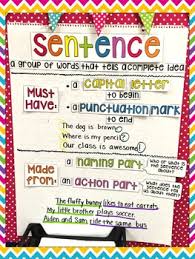 sentence
a group of words that tells a complete idea
Must Have:
• a capital letter
to begin
• a punctuation mark
to end
The dog is brown.
Where is my pencil?
Our class is awesome!
Made from:
• a naming part
• an action part
The fluffy bunny likes to eat carrots.
My little brother plays soccer.
Aiden and Sam ride the same bus.